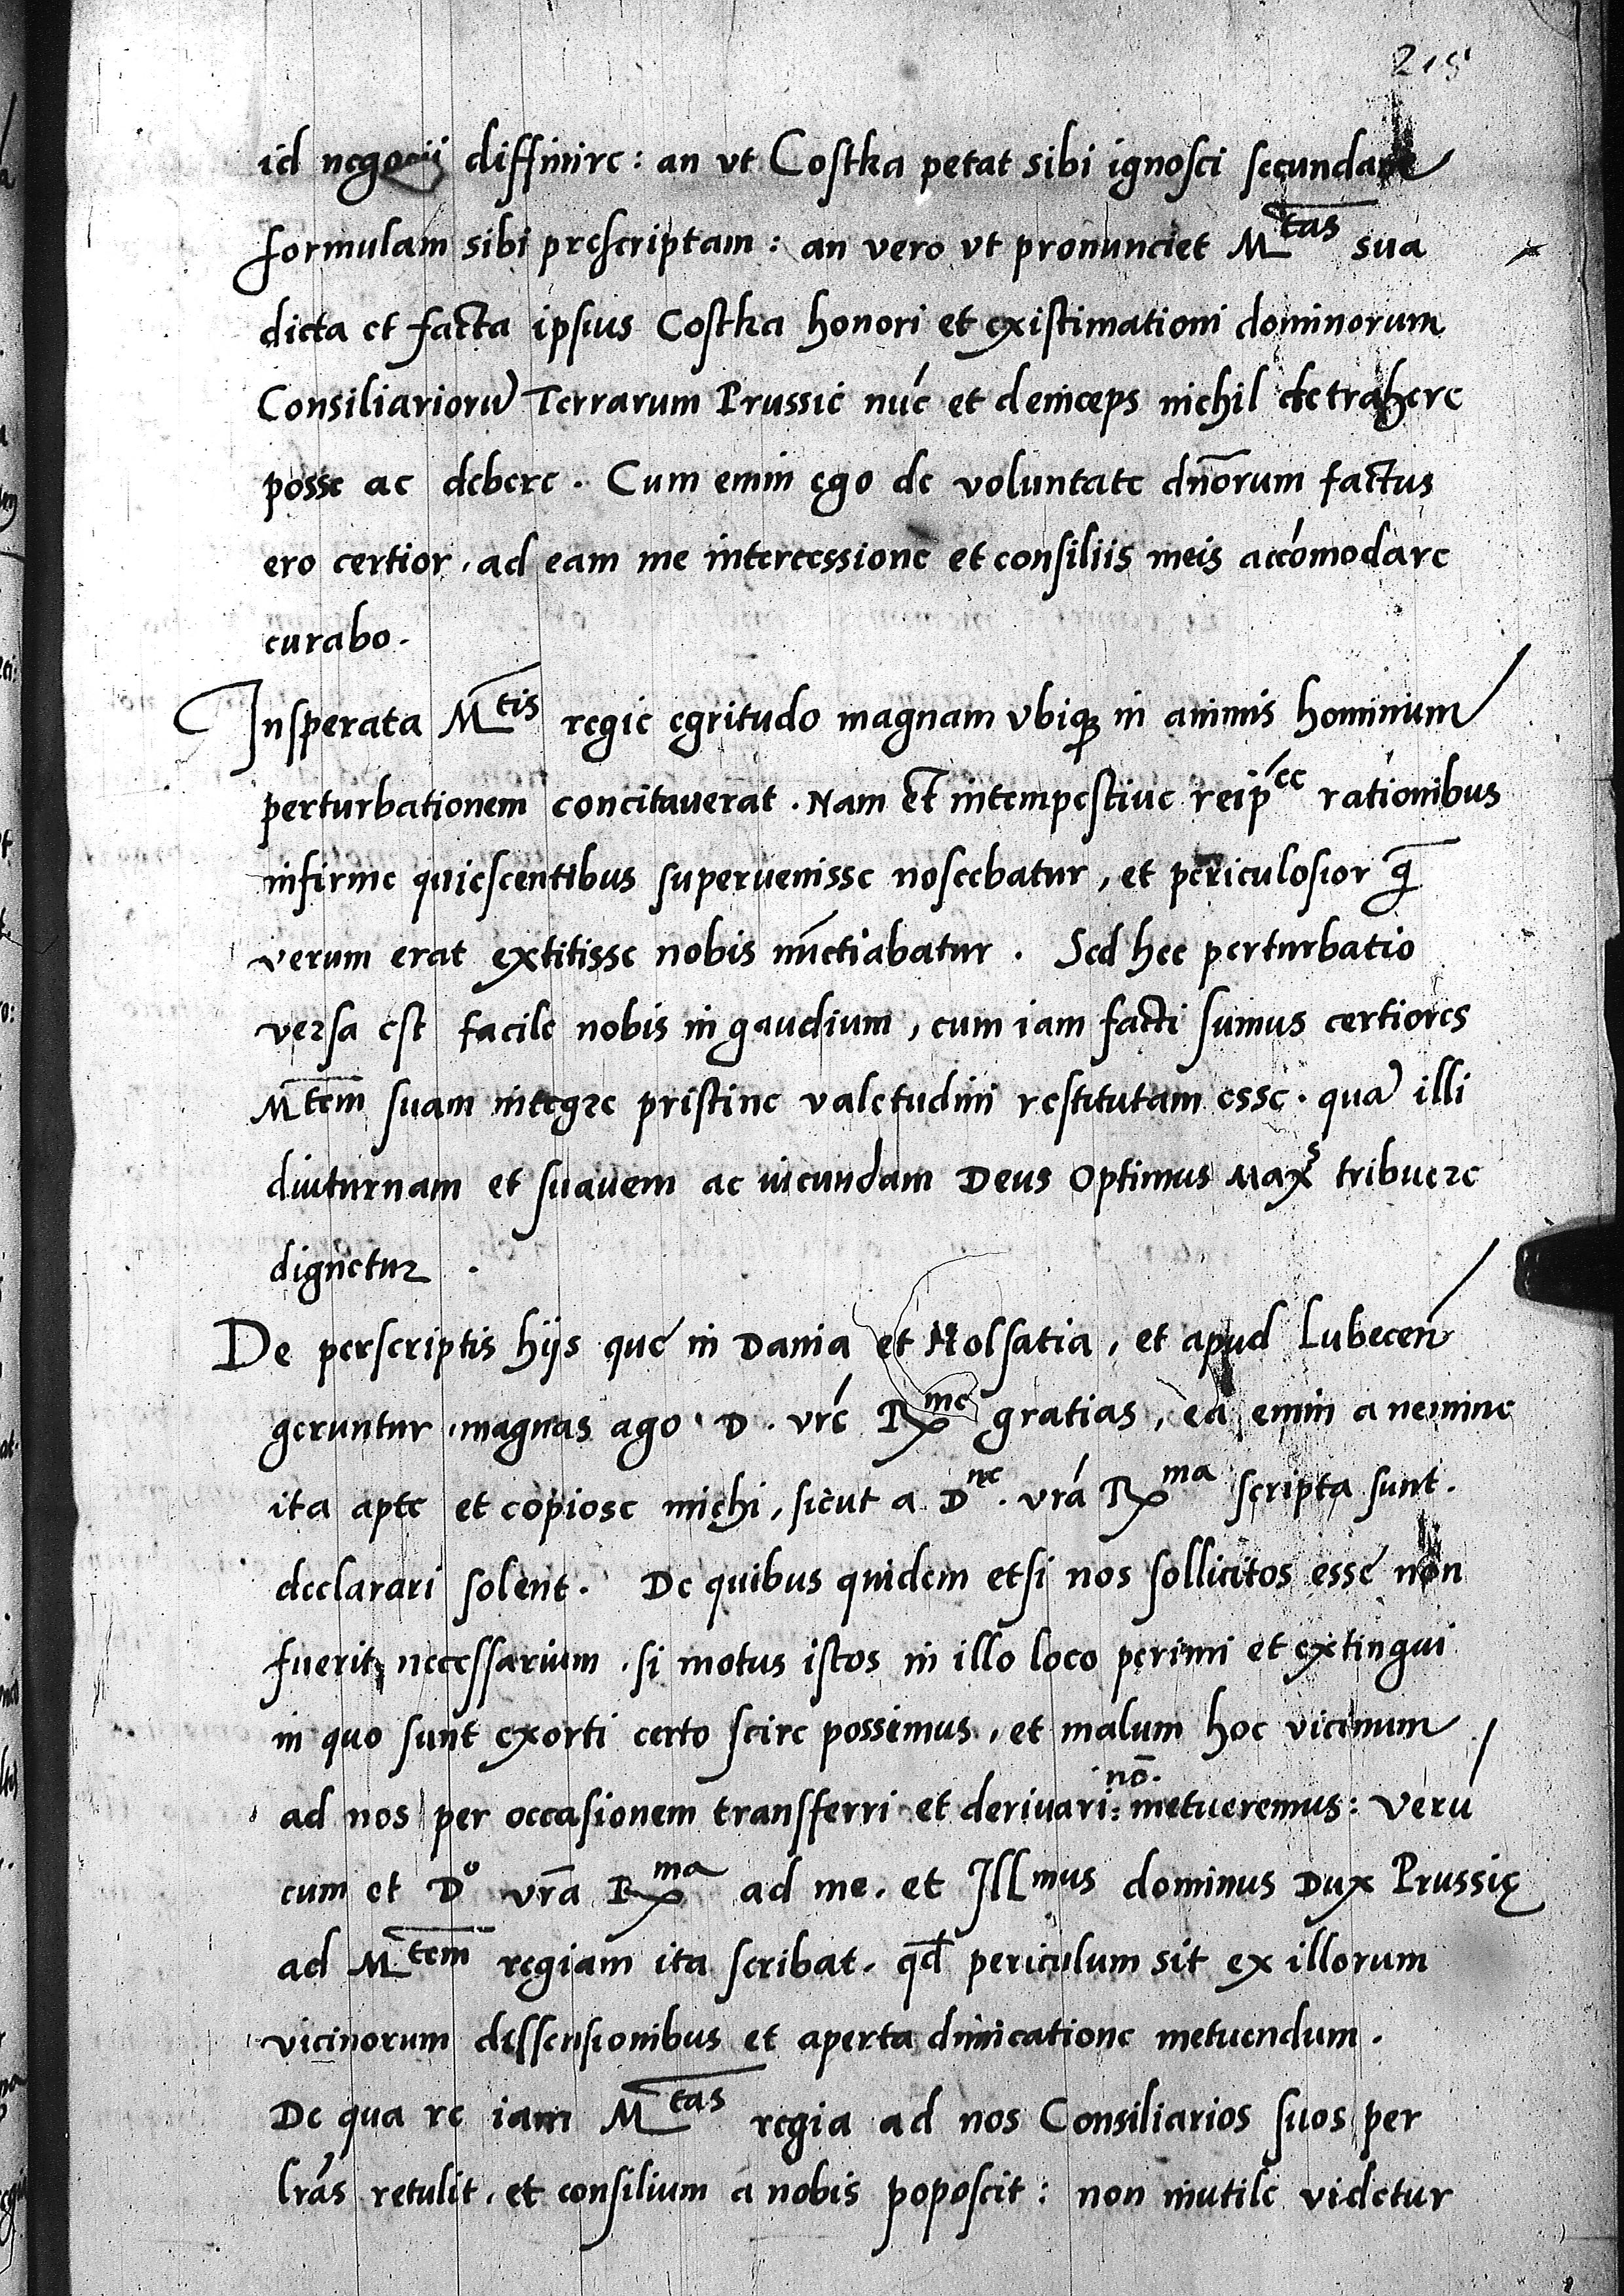 215
id negocii diffinire: an vt Costka petat sibi ignosci secundare
formulam sibi prescriptam: an vero vt pronunciet M^tas sua
dicta et facta ipsius Costka honori et existimationi dominorum
Consiliariorū Terrarum Prussie nūc et deinceps nichil detrahere
posse ac debere. Cum enim ego de voluntate dn̄orum factus
ero certior, ad eam me intercessione et consiliis meis accōmodare
curabo.
Insperata M^tis regie egritudo magnam vbiqꝫ in animis hominum
perturbationem concitauerat. Nam et intempestiue reip^ce rationibus
infirme quiescentibus superuenisse noscebatur, et periculosior q̄
verum erat extitisse nobis nūctiabatur. Sed hec perturbatio
versa est facile nobis in gaudium, cum iam facti sumus certiores
M^tem suam integre pristine valetudini restitutam esse. quā illi
diuturnam et suauem ac iucundam Deus Optimus Max^s tribuere
dignetur.
De perscriptis hijs que in Dania et Holsatia, et apud Lubecen̄
geruntur, magnas ago D. vr̄e R^me gratias, ea enim a nemine
ita apte et copiose michi, sicut a D^ne. vr̄a R^ma scripta sunt.
declarari solent. De quibus quidem etsi nos sollicitos esse non
fuerit necessarium, si motus istos in illo loco perimi et extingui
in quo sunt exorti certo scire possimus, et malum hoc vicinum
ad nos per occasionem transferri et deriuari: nō. metueremus: verū
cum et D^o vr̄a R^ma ad me, et Ill^mus dominus Dux Prussię
ad M^tem regiam ita scribat, qd̄ periculum sit ex illorum
vicinorum dissensionibus et aperta dimicatione metuendum.
De qua re iam M^tas regia ad nos Consiliarios suos per
lr̄as retulit, et consilium a nobis poposcit: non inutile videtur